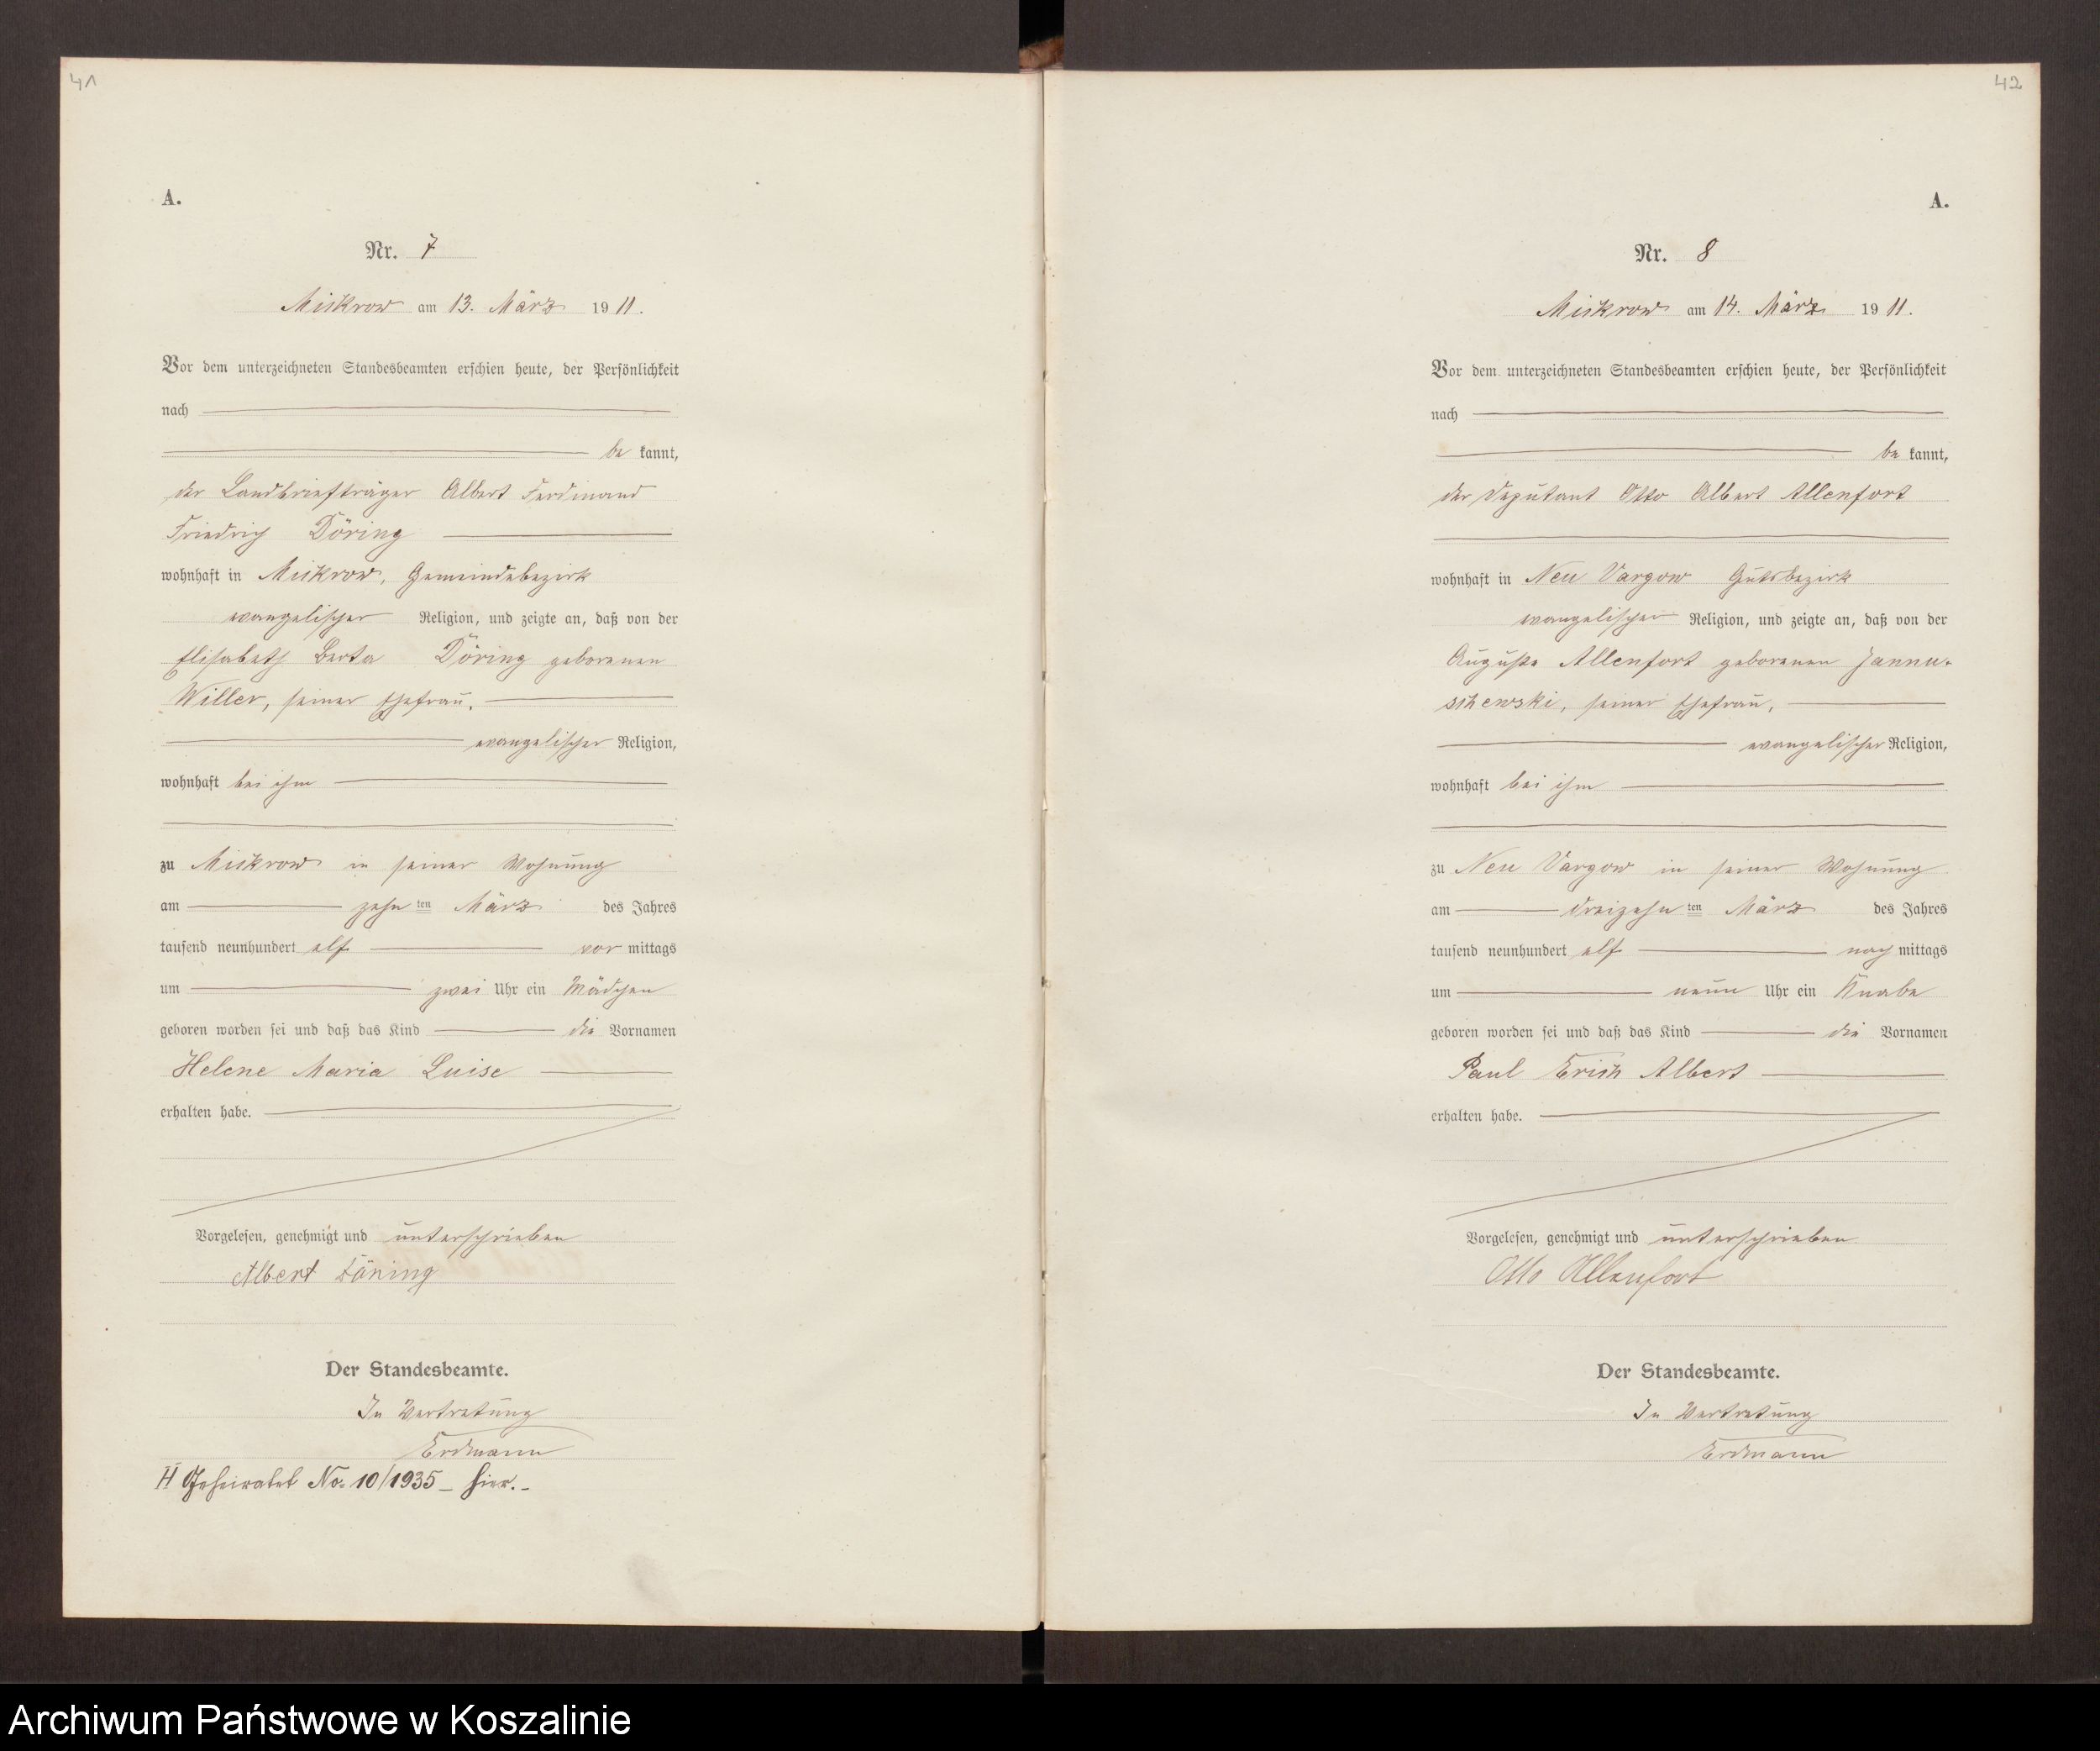 41
A.
Nr. 7
Mickrow am 13. März 1911.
Vor dem unterzeichneten Standesbeamten erschien heute, der Persönlichkeit
nach
be kannt,
der Landbriefträger Albert Ferdinand
Friedrich Döring
wohnhaft in Mickrow, Gemeindebezirk
evangelischer Religion, und zeigte an, daß von der
Elisabeth Berta Döring geborenen
Willer, seiner Ehefrau,
evangelischer Religion,
wohnhaft bei ihm
zu Mickrow in seiner Wohnung
am zehn ten März des Jahres
tausend neunhundert elf vor mittags
um zwei Uhr ein Mädchen
geboren worden sei und daß das Kind die Vornamen
Helene Maria Luise
erhalten habe.
Vorgelesen, genehmigt und unterschrieben
Albert Döring
Der Standesbeamte.
In Vertretung
Erdmann
Geheiratet No. 10/1935 - hier.-
42
A.
Nr. 8
Mickrow am 14. März 1911.
Vor dem unterzeichneten Standesbeamten erschien heute, der Persönlichkeit
nach
be kannt,
der Deputant Otto Albert Allenfort
wohnhaft in Neu Vargow Gutsbezirk
evangelischer Religion, und zeigte an, daß von der
Auguste Allenfort geborenen Jannu-
schewski, seiner Ehefrau,
evangelischer Religion,
wohnhaft bei ihm
zu Neu Vargow in seiner Wohnung
am dreizehn ten März des Jahres
tausend neunhundert elf nach mittags
um neun Uhr ein Knabe
geboren worden sei und daß das Kind die Vornamen
Paul Erich Albert
erhalten habe.
Vorgelesen, genehmigt und unterschrieben
Otto Allenfort
Der Standesbeamte.
In Vertretung
Erdmann
Archiwum Państwowe w Koszalinie